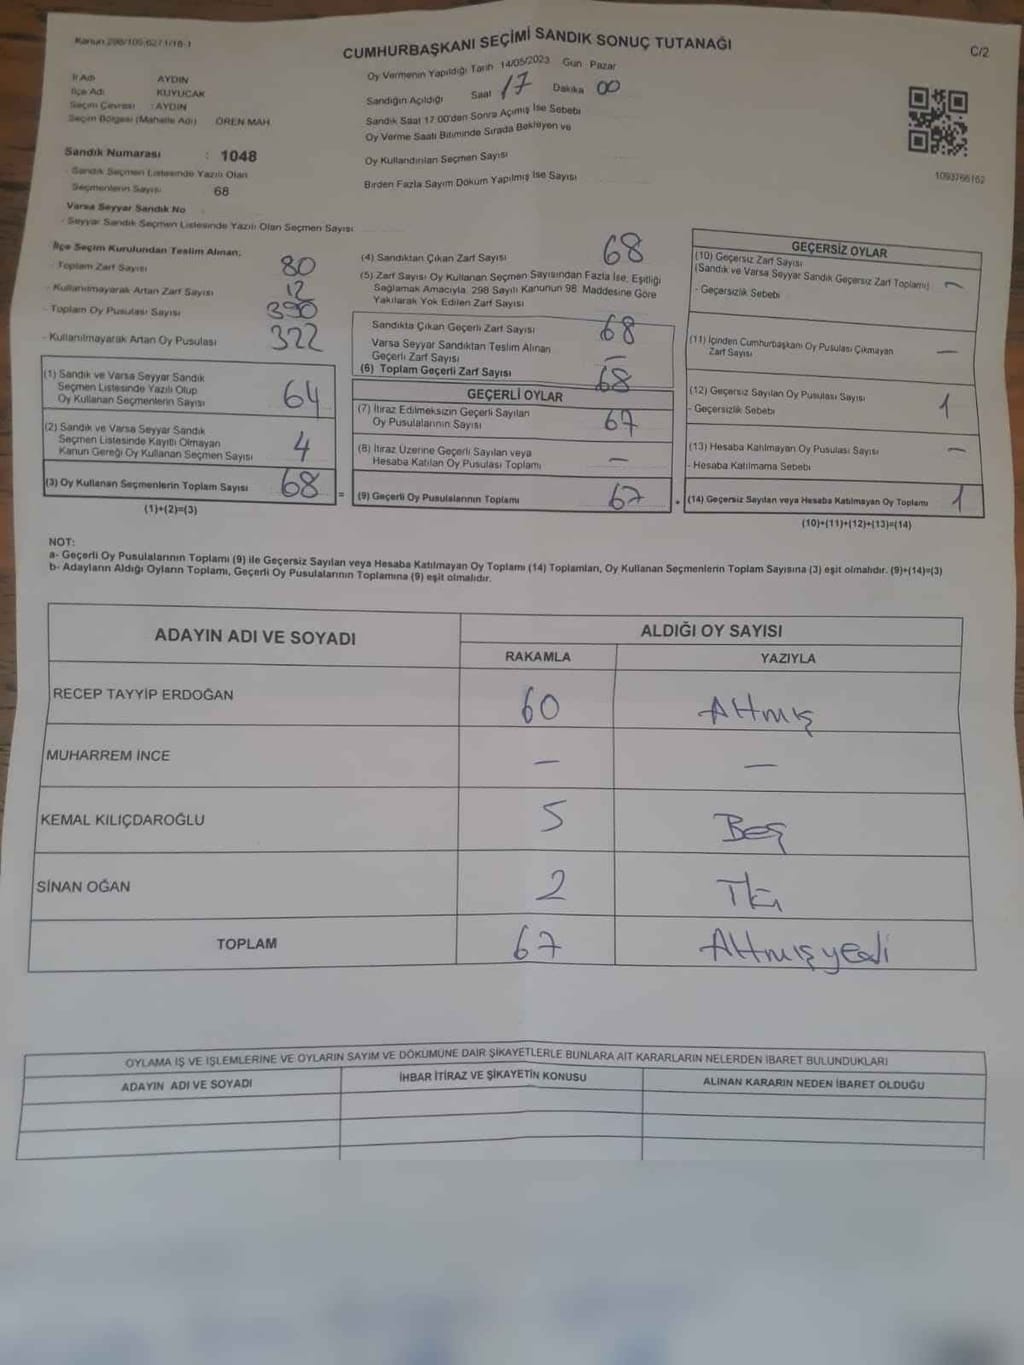 Kanun 298/105-627/1/16-1
CUMHURBAŞKANI SEÇİMİ SANDIK SONUÇ TUTANAĞI
C/2
İl Adı AYDIN
İlçe Adı KUYUCAK
Seçim Çevresi : AYDIN
Seçim Bölgesi (Mahalle Adı) ÖREN MAH.
Oy Vermenin Yapıldığı Tarih 14/05/2023 Gün Pazar
Sandığın Açıldığı Saat 17 Dakika 00
Sandık Saat 17.00'den Sonra Açılmış İse Sebebi
Oy Verme Saati Bitiminde Sırada Bekleyen ve
Oy Kullandırılan Seçmen Sayısı
Birden Fazla Sayım Döküm Yapılmış İse Sayısı
1093766162
Sandık Numarası : 1048
- Sandık Seçmen Listesinde Yazılı Olan
Seçmenlerin Sayısı 68
Varsa Seyyar Sandık No
- Seyyar Sandık Seçmen Listesinde Yazılı Olan Seçmen Sayısı
İlçe Seçim Kurulundan Teslim Alınan;
- Toplam Zarf Sayısı 80
- Kullanılmayarak Artan Zarf Sayısı 12
- Toplam Oy Pusulası Sayısı 390
- Kullanılmayarak Artan Oy Pusulası 322
(1) Sandık ve Varsa Seyyar Sandık
Seçmen Listesinde Yazılı Olup
Oy Kullanan Seçmenlerin Sayısı 64
(2) Sandık ve Varsa Seyyar Sandık
Seçmen Listesinde Kayıtlı Olmayan
Kanun Gereği Oy Kullanan Seçmen Sayısı 4
(3) Oy Kullanan Seçmenlerin Toplam Sayısı 68 =
(1)+(2)=(3)
(4) Sandıktan Çıkan Zarf Sayısı 68
(5) Zarf Sayısı Oy Kullanan Seçmen Sayısından Fazla İse, Eşitliği
Sağlamak Amacıyla, 298 Sayılı Kanunun 98. Maddesine Göre
Yakılarak Yok Edilen Zarf Sayısı
Sandıkta Çıkan Geçerli Zarf Sayısı 68
Varsa Seyyar Sandıktan Teslim Alınan
Geçerli Zarf Sayısı —
(6) Toplam Geçerli Zarf Sayısı 68
GEÇERLİ OYLAR
(7) İtiraz Edilmeksizin Geçerli Sayılan
Oy Pusulalarının Sayısı 67
(8) İtiraz Üzerine Geçerli Sayılan veya
Hesaba Katılan Oy Pusulası Toplamı —
(9) Geçerli Oy Pusulalarının Toplamı 67 +
GEÇERSİZ OYLAR
(10) Geçersiz Zarf Sayısı
(Sandık ve Varsa Seyyar Sandık Geçersiz Zarf Toplamı) —
- Geçersizlik Sebebi
(11) İçinden Cumhurbaşkanı Oy Pusulası Çıkmayan
Zarf Sayısı —
(12) Geçersiz Sayılan Oy Pusulası Sayısı 1
- Geçersizlik Sebebi
(13) Hesaba Katılmayan Oy Pusulası Sayısı —
- Hesaba Katılmama Sebebi
(14) Geçersiz Sayılan veya Hesaba Katılmayan Oy Toplamı 1
(10)+(11)+(12)+(13)=(14)
NOT:
a- Geçerli Oy Pusulalarının Toplamı (9) ile Geçersiz Sayılan veya Hesaba Katılmayan Oy Toplamı (14) Toplamları, Oy Kullanan Seçmenlerin Toplam Sayısına (3) eşit olmalıdır. (9)+(14)=(3)
b- Adayların Aldığı Oyların Toplamı, Geçerli Oy Pusulalarının Toplamına (9) eşit olmalıdır.
ADAYIN ADI VE SOYADI ALDIĞI OY SAYISI
RAKAMLA YAZIYLA
RECEP TAYYİP ERDOĞAN 60 Altmış
MUHARREM İNCE — —
KEMAL KILIÇDAROĞLU 5 Beş
SİNAN OĞAN 2 İki
TOPLAM 67 Altmışyedi
OYLAMA İŞ VE İŞLEMLERİNE VE OYLARIN SAYIM VE DÖKÜMÜNE DAİR ŞİKAYETLERLE BUNLARA AİT KARARLARIN NELERDEN İBARET BULUNDUKLARI
ADAYIN ADI VE SOYADI İHBAR İTİRAZ VE ŞİKAYETİN KONUSU ALINAN KARARIN NEDEN İBARET OLDUĞU